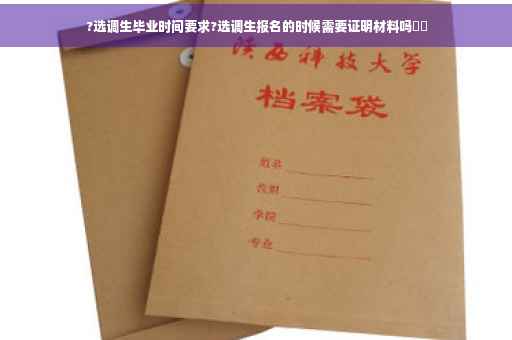 ?选调生毕业时间要求?选调生报名的时候需要证明材料吗
陕西科技大学
档案袋
姓名
学院
专业